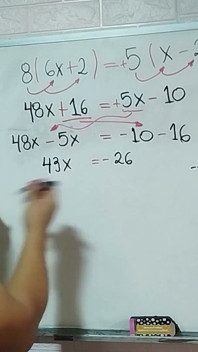 8(6x+2) = +5(x-2
48x+16 = +5x-10
48x-5x = -10-16
43x = -26